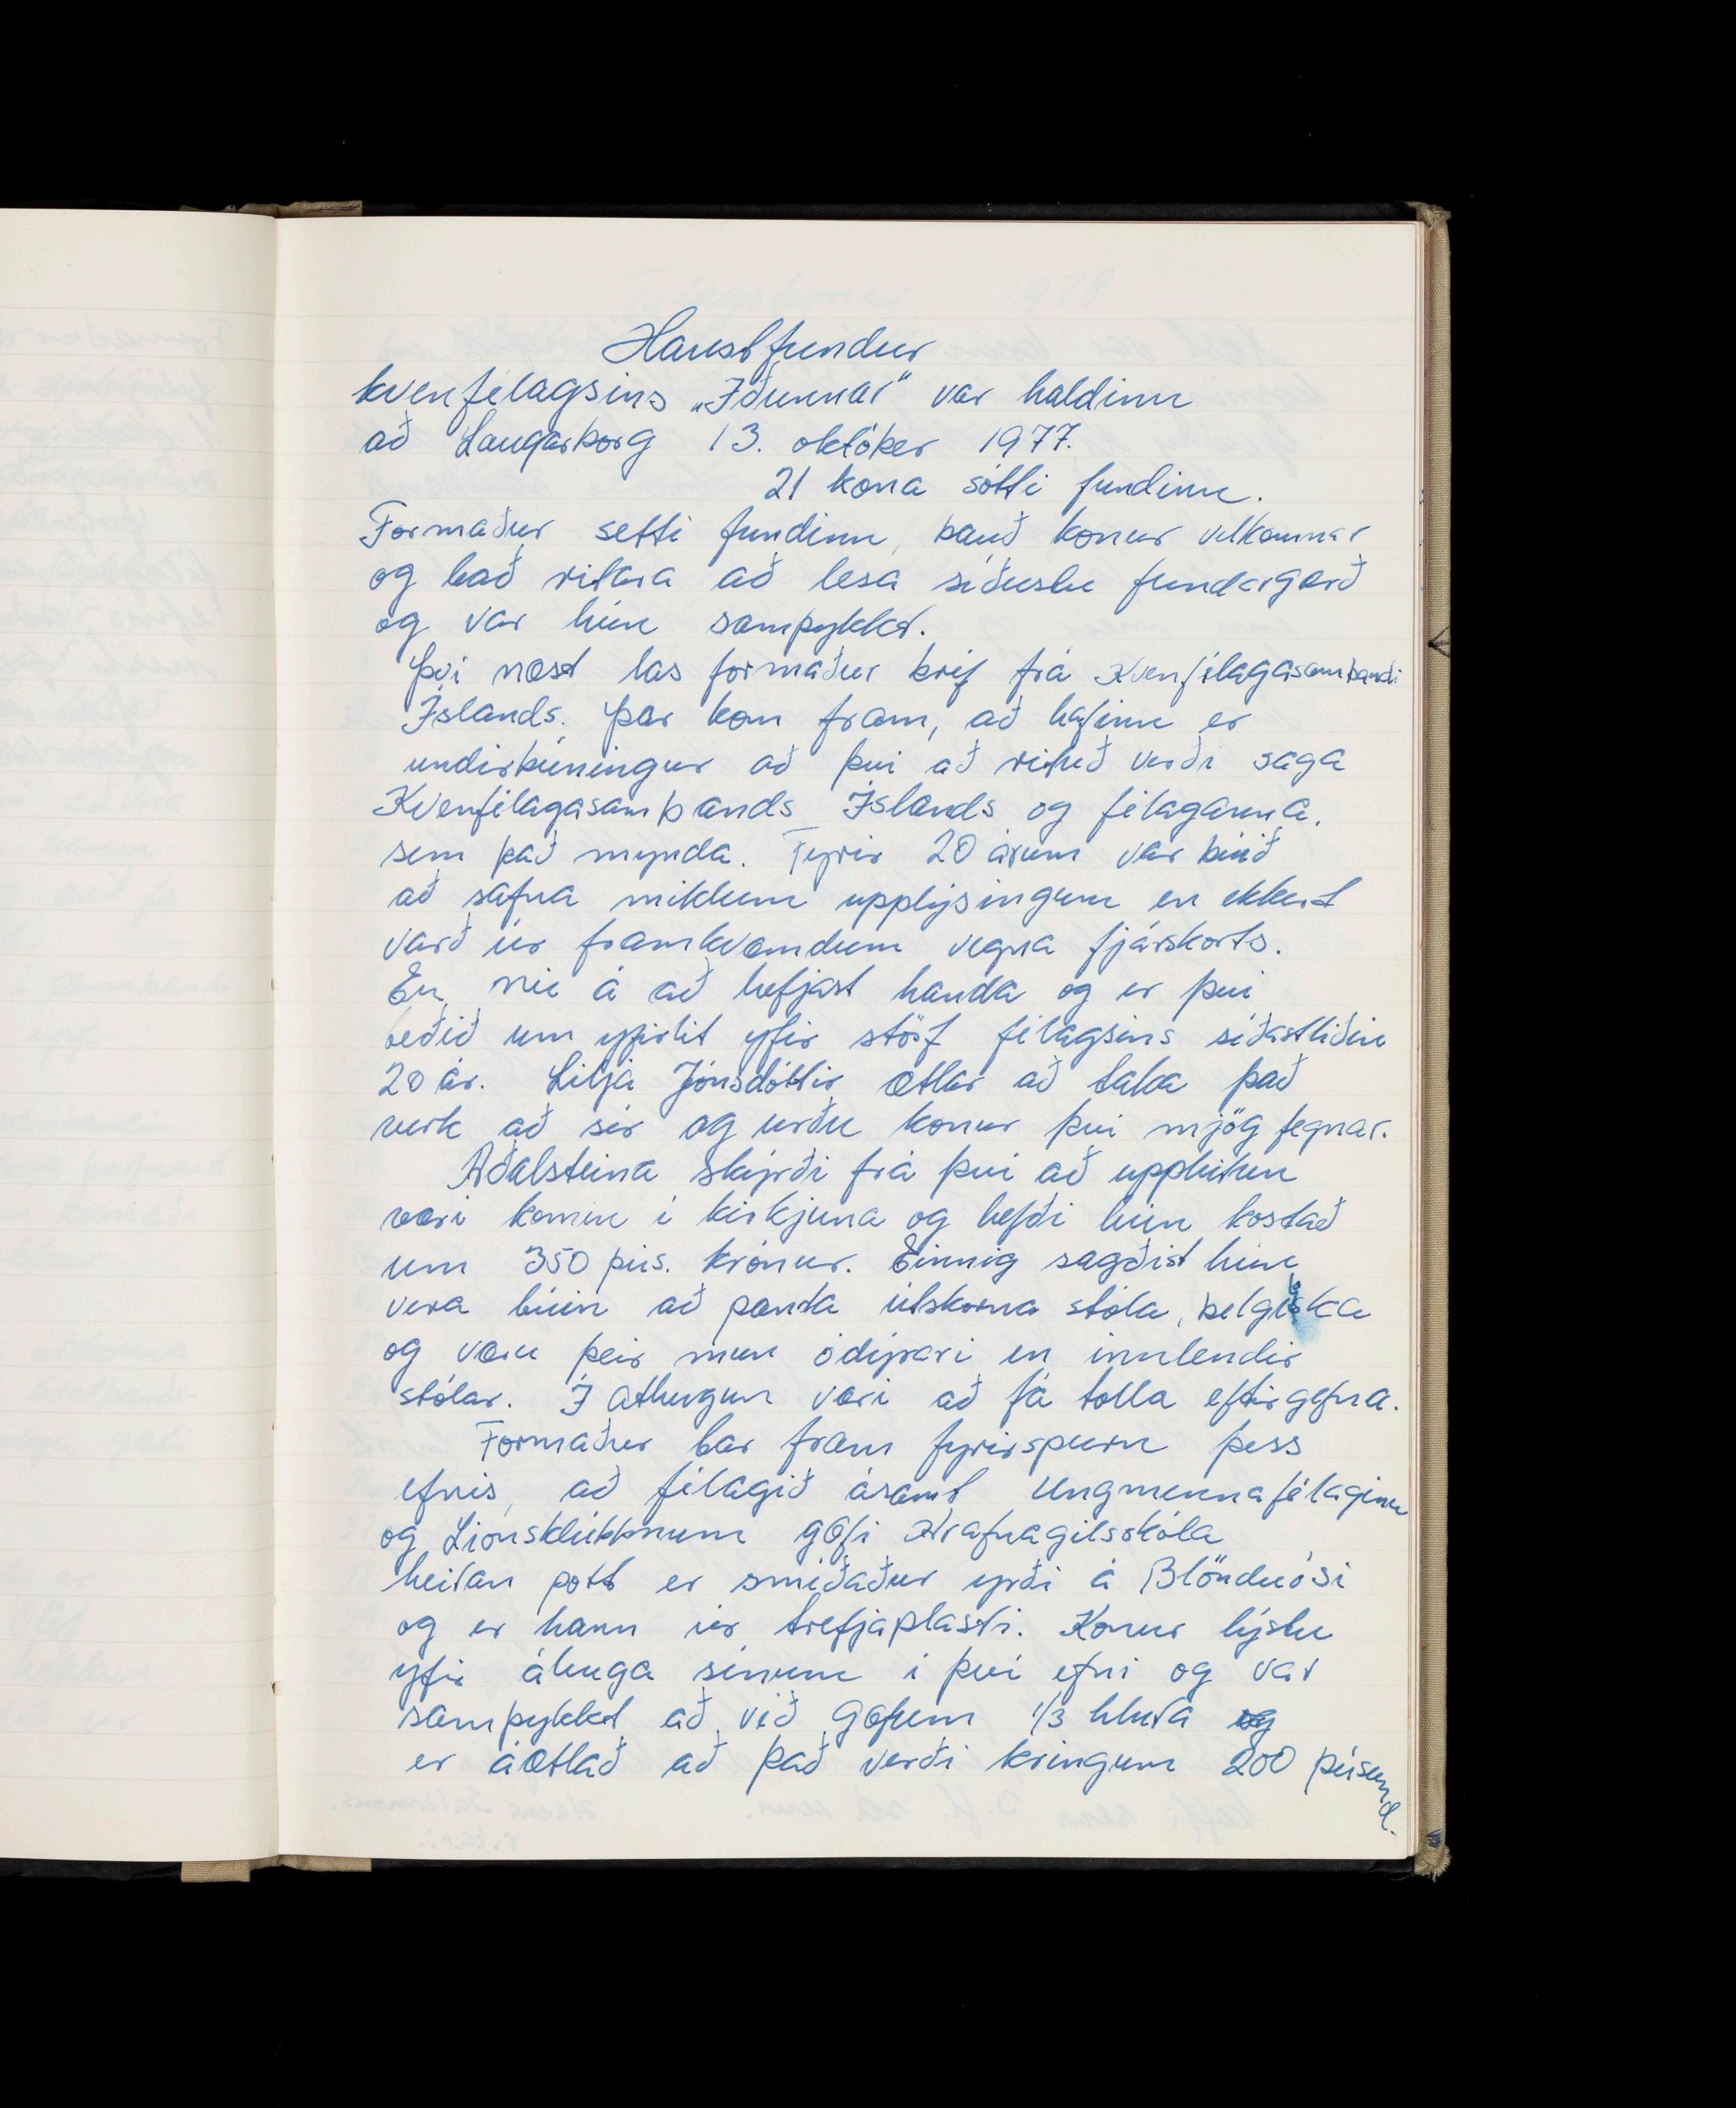 Haustfundur
kvenfélagsins „Iðunnar" var haldinn
að Laugarborg 13. október 1977.
21 kona sótti fundinn.
Formaður setti fundinn, bauð konur velkomnar
og bað ritara að lesa síðustu fundargerð
og var hún samþykkt.
Því næst las formaður bréf frá Kvenfélagasambandi
Íslands. Þar kom fram, að hafinn er
undirbúningur að því að rituð verði saga
Kvenfélagasambands Íslands og félaganna,
sem það mynda. Fyrir 20 árum var búið
að safna miklum upplýsingum en ekkert
varð úr framkvæmdum vegna fjárskorts.
En nú á að hefjast handa og er því
beðið um yfirlit yfir störf félagsins síðastliðin
20 ár. Lilja Jónsdóttir ætlar að taka það
verk að sér og urðu konur því mjög fegnar.
Aðalsteina skýrði frá því að upphitun
væri komin í kirkjuna og hefði hún kostað
um 350 þús. krónur. Einnig sagðist hún
vera búin að panta útskorna stóla, belgíska
og væru þeir mun ódýrari en innlendir
stólar. Í athugun væri að fá tolla eftirgefna.
Formaður bar fram fyrirspurn þess
efnis, að félagið ásamt Ungmennafélaginu
og Lionsklúbbnum gæfi Hrafnagilsskóla
heitan pott er smíðaður yrði á Blönduósi
og er hann úr trefjaplasti. Konur lýstu
yfir áhuga sínum í því efni og var
samþykkt að við gæfum 1/3 hluta og
er áætlað að það verði kringum 200 þúsund.